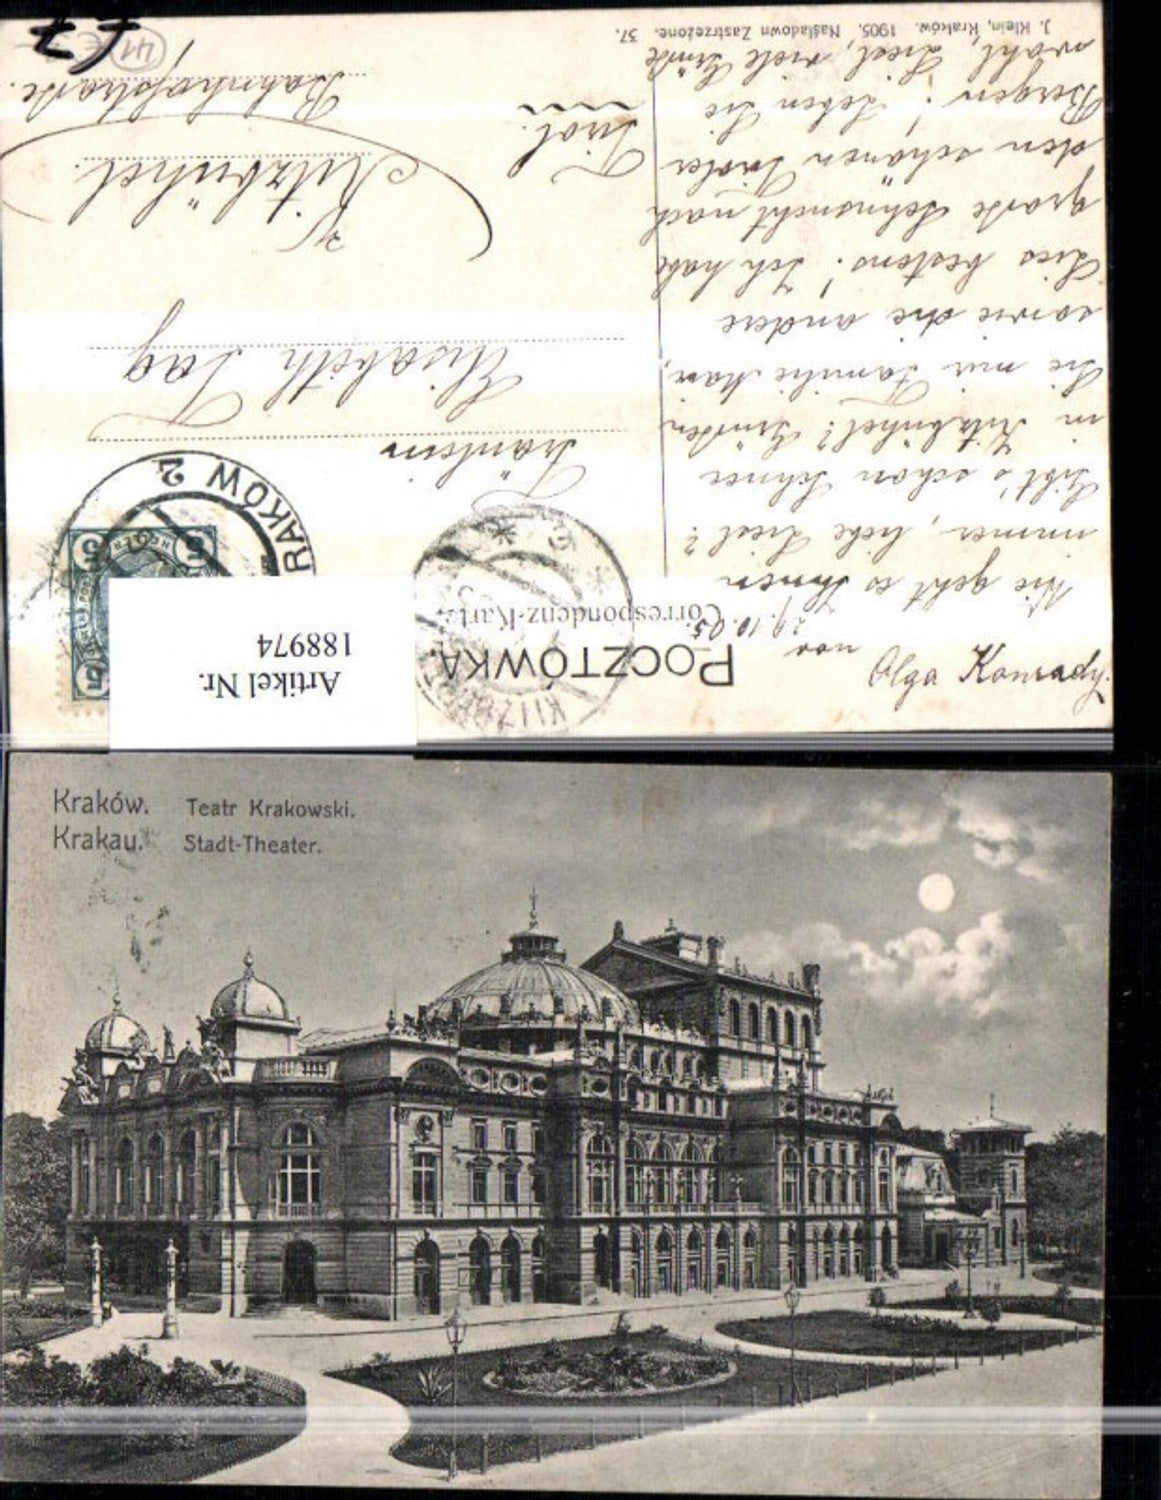 J. Klein, Kraków. 1905. Naśladown Zastrzeżone. 37.
POCZTÓWKA.
Correspondenz-Karte.
Olga Konrady.
29.10.05.
Wie geht es Ihnen
immer, liebe Liesl?
Gibt's schon Schnee
in Kitzbühel? Grüßen
Sie mir Familie
sowie die andere
bestens! Ich habe
große Sehnsucht nach
den schönen Tiroler
Bergen! Leben Sie
wohl, Liesl, viele Grüße
Fräulein
Elisabeth
Kitzbühel.
Bahnhofstraße.
Tirol.
KRAKÓW 2
5 5
5
41
Artikel Nr.
188974
Kraków. Teatr Krakowski.
Krakau. Stadt-Theater.